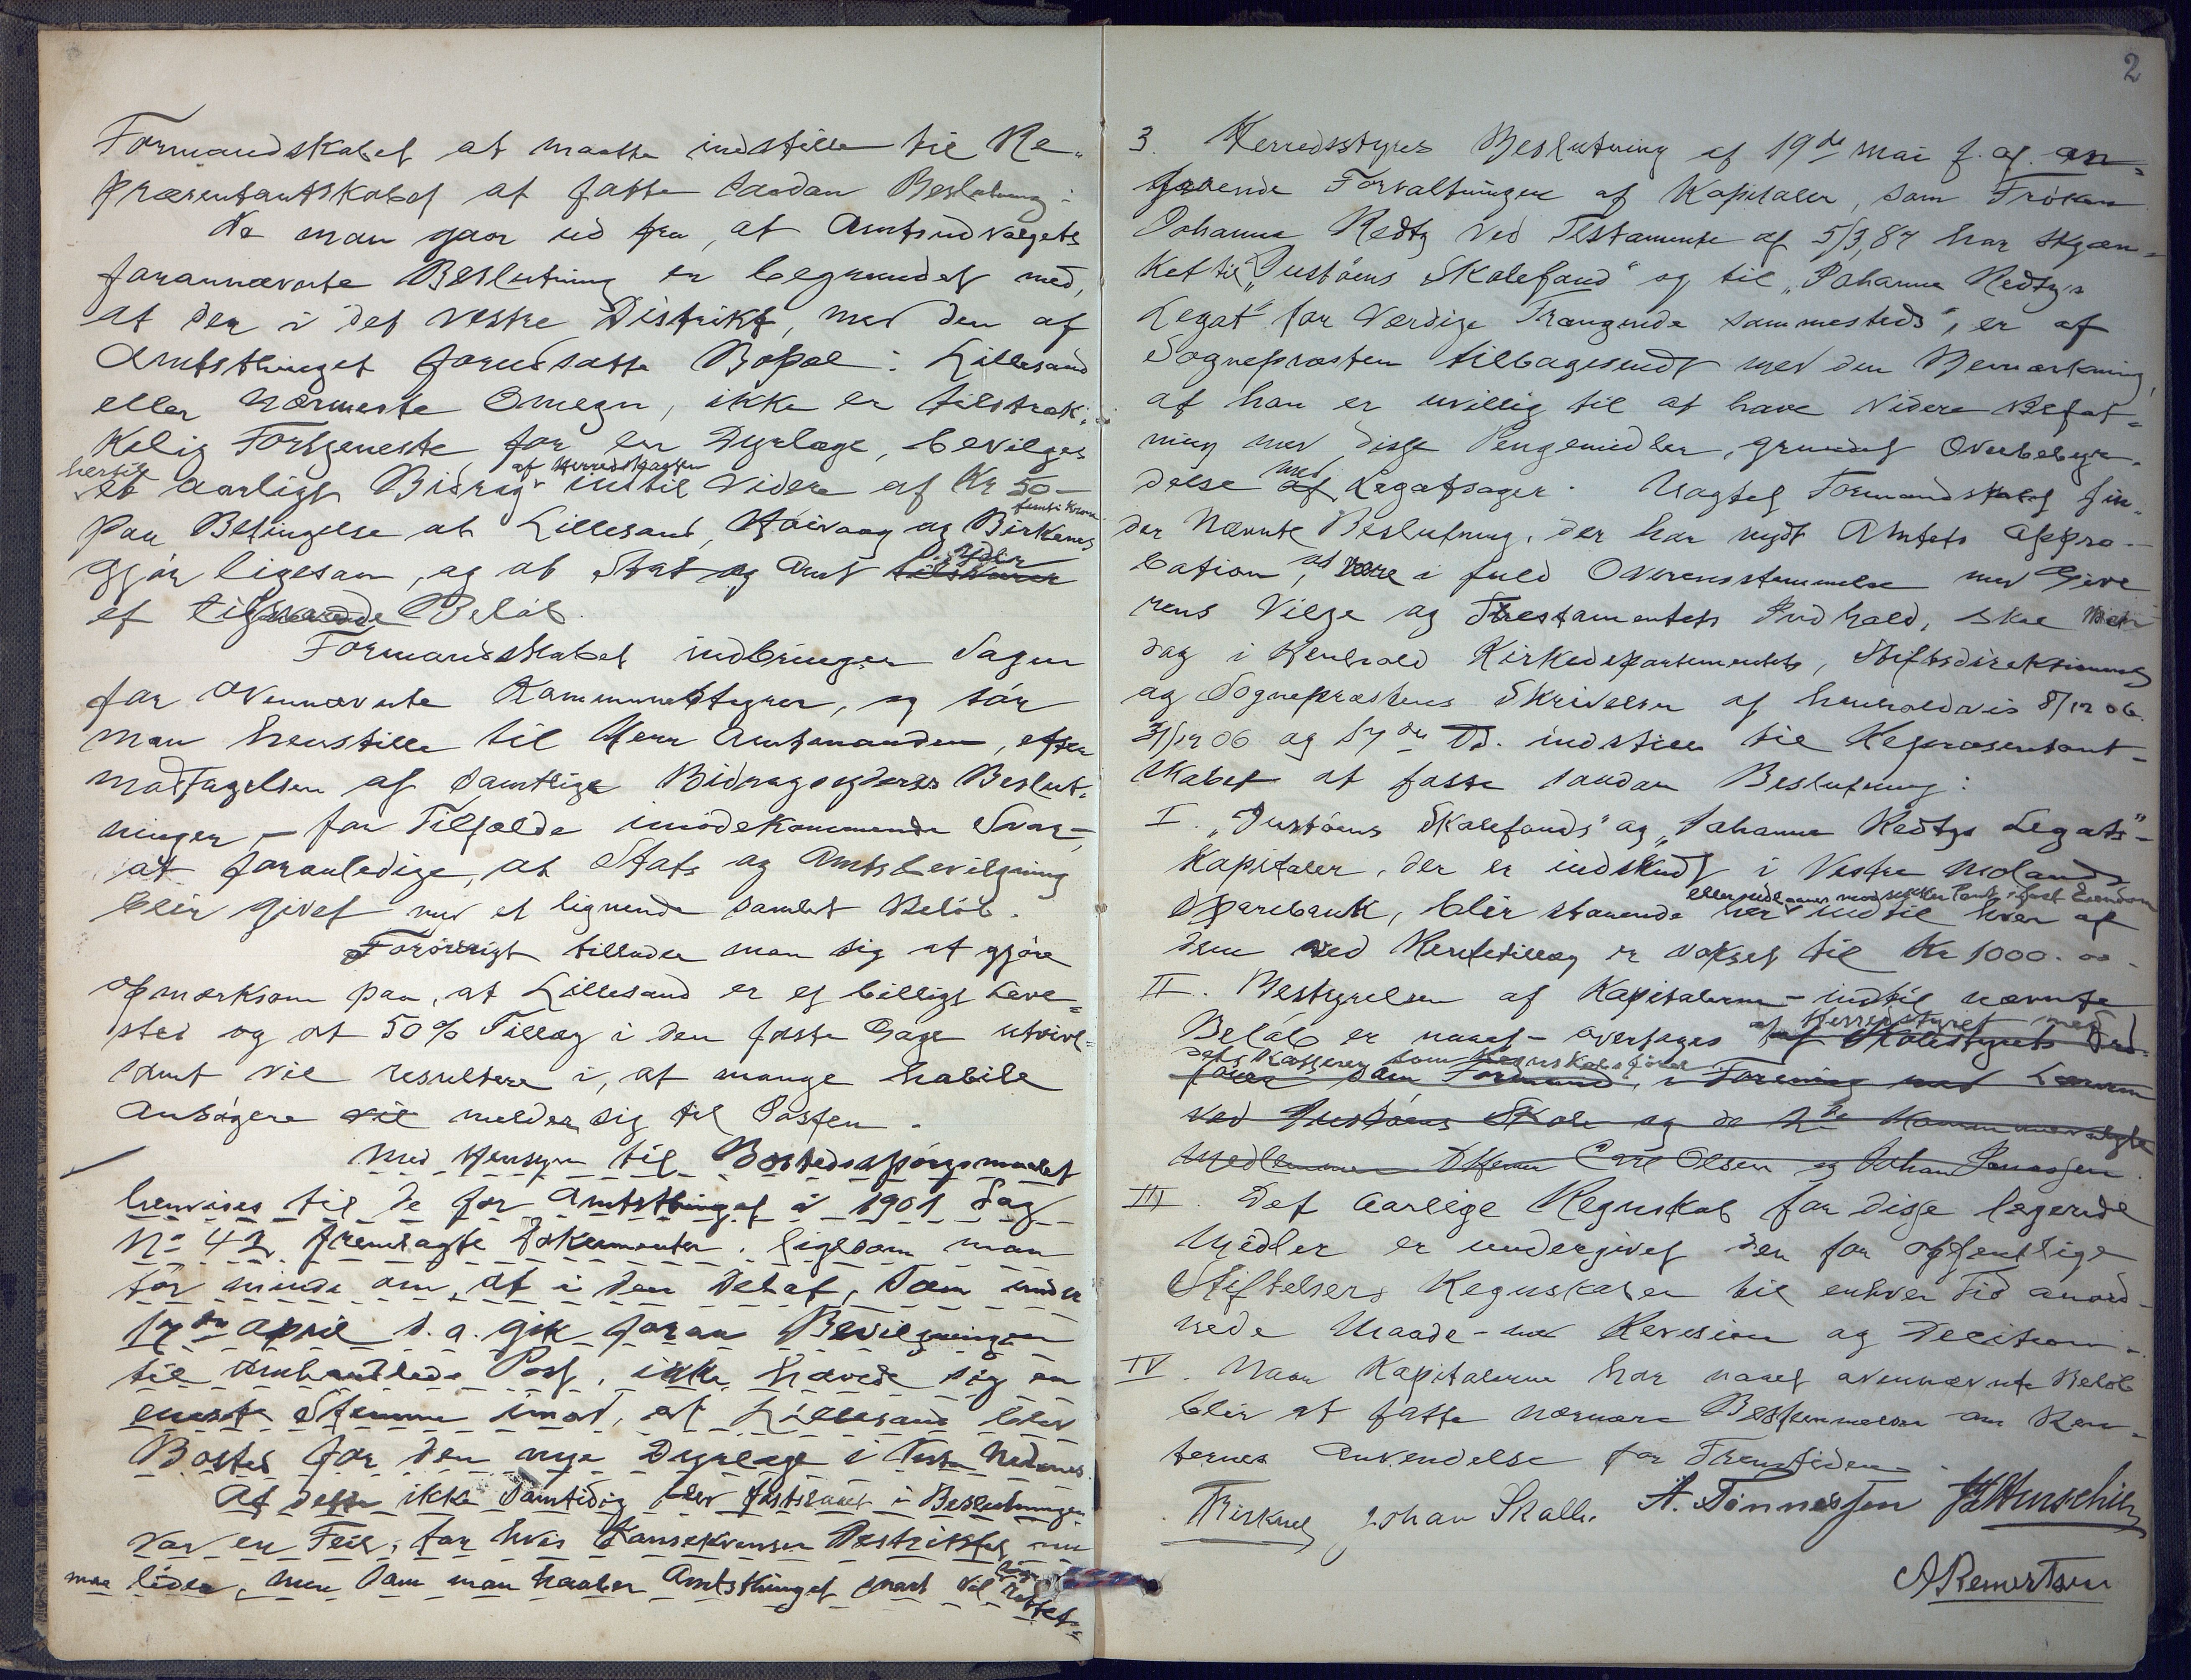 Formandskabet at maatte indstille til Re-
præsentantskabet at fatte saadan Beslutning:
Da man gaar ud fra, at Amtsudvalgets
forannævnte Beslutning er begrundet med,
at der i det vestre Distrikt, med den af
Amtsthinget forudsatte Bopæl i Lillesand
eller nærmeste Omegn, ikke er tilstræk-
kelig Fortjeneste for en Dyrlæge, bevilges
hertil af Herredskassen
et aarligt Bidrag indtil videre af Kr 50 –
femti Kroner
paa Betingelse at Lillesand, Høivaag og Birkenes
gjør ligesaa, og at Stat og Amt tilskarer yder
et tilsvarende Beløb.
Formandskabet indbringer Sagen
for ovennævnte Kommunestyrer, og tør
man henstille til Herr Amtmanden, efter
modtagelsen af samtlige Bidragsyderes Beslut-
ninger – for Tilfælde imødekommende Svar –
at foranledige, at Stats og Amtsbevilgning
blir givet med et lignende samlet Beløb.
Forøvrigt tillader man sig at gjøre
opmærksom paa, at Lillesand er et billigt Leve-
sted og at 50% Tillæg i den faste Gage utvivl-
somt vil resultere i, at mange habile
Ansøgere vil melder sig til Posten.
Med Hensyn til Bostedsspørgsmaalet
henvises til de for Amtsthinget i 1901 Sag
No 42 fremlagte Dokumenter, ligesom man
tør minde om, at i den Debat, som under
17de april d. a. gik foran Bevilgningen
til omhandlede Post, ikke hævede sig en
eneste Stemme imod, at Lillesand blev
Bosted for den nye Dyrlæge i Vestre Nedenes.
At dette ikke samtidig blev fastslaaet i Beslutningen
var en Feil, for hvis Konsekvenser Distriktet nu
maa lide, men som man haaber Amtsthinget snart vil faa rettet.
2
3. Herredsstyres Beslutning af 19de mai f. a. an-
gaaende Forvaltningen af Kapitaler, som Frøken
Johanne Redtz ved Testamente af 5/3, 87 har skjæn-
ket til "Justøens Skolefond" og til "Johanne Redtz's
Legat" for værdige Trængende sammesteds", er af
Sognepræsten tilbagesendt med den Bemærkning,
at han er uvillig til at have videre Befat-
ning med disse Pengemidler, grundet Overbebyr-
delse af med Legatsager. Uagtet Formandskabet fin-
der nævnte Beslutning, der har nydt Amtets Appro-
bation, at være i fuld Overensstemmelse med Give-
rens Vilje og Testamentets Indhold, skal man
dog i Henhold Kirkedepartementets, Stiftsdirektionens
og Sognepræstens Skrivelser af henholdsvis 8/12 06.
31/12 06 og 17de ds. indstille til Repræsentant-
skabet at fatte saadan Beslutning:
I. "Justøens Skolefonds" og "Johanne Redtzs Legats"-
Kapitaler, der er indskudt i Vestre Molands
eller udlaanes mod sikker Pant i fast Eiendom
Sparebank, blir staaende her indtil hver af
dem ved Rentetillæg er vokset til Kr 1000.00.
II. Bestyrelsen af Kapitalerne – indtil nævnte
Beløb er naaet – overtages af Herredsstyret med
af Skolestyrets Ord-
dets Kasserer som Regnskabsfører
fører som Formand, i Forening med Læreren
ved Justøens Skole og de 2de Kommunevalgte
Medlemmer DHerrer Carl Olsen og Johan Jonassen.
III. Det aarlige Regnskab for disse legerede
Midler er undergivet den for offentlige
Stiftelsers Regnskaber til enhver Tid anord-
nede Maade – med Revision og Decision.
IV. Naar Kapitalerne har naaet ovennævnte Beløb
blir at fatte nærmere Bestemmelse om Ren-
ternes Anvendelse for Fremtiden.
Johan Skalle. A. Tønnessen